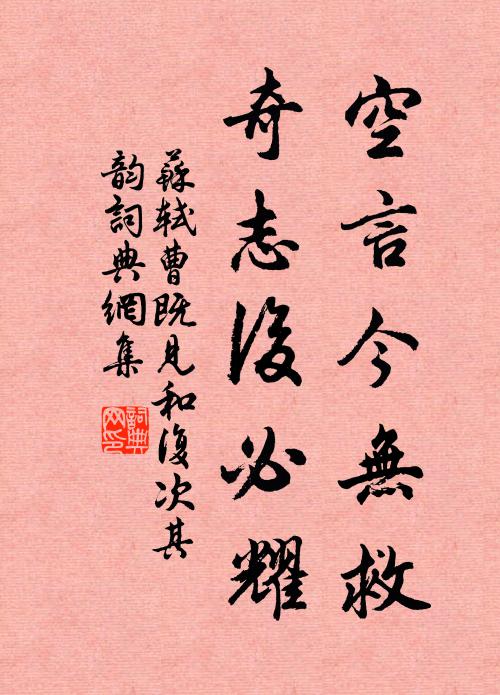 空言今無救
奇志後必耀
蘇軾曹既見和復次其
韵詞典網集
詞典
网印